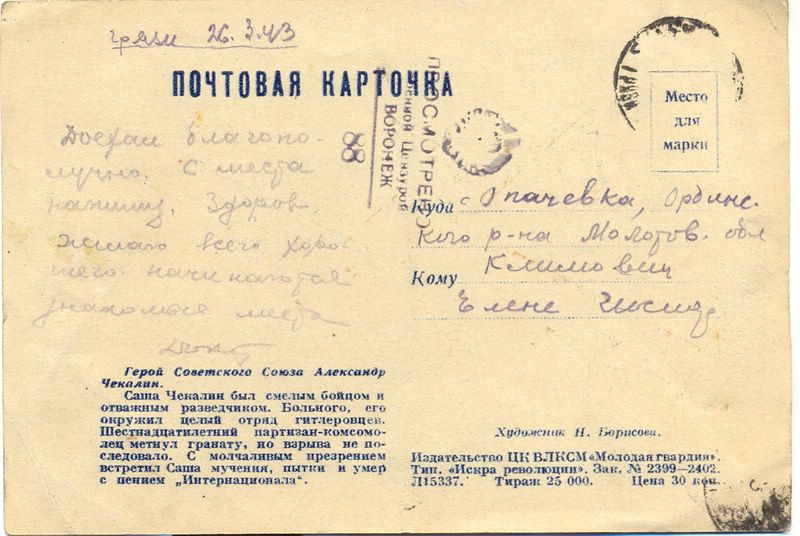 Грязи 26.3.43
ПОЧТОВАЯ КАРТОЧКА
Место
для
марки
ПРОСМОТРЕНО
Военной Цензурой
ВОРОНЕЖ
88
Доехал благопо-
лучно. С места
напишу. Здоров.
Желаю всего хоро-
шего. начинаются
знакомые места
Куда с Опачевка, Ординс.
кого р-на Молотов. обл
Кому Климович
Елене
Герой Советского Союза Александр
Чекалин.
Саша Чекалин был смелым бойцом и
отважным разведчиком. Больного, его
окружил целый отряд гитлеровцев.
Шестнадцатилетний партизан-комсомо-
лец метнул гранату, но взрыва не по-
следовало. С молчаливым презрением
встретил Саша мучения, пытки и умер
с пением „Интернационала".
Художник Н. Борисова.
Издательство ЦК ВЛКСМ «Молодая гвардия».
Тип. «Искра революции». Зак. № 2399—2402.
Л15337. Тираж 25 000. Цена 30 коп.